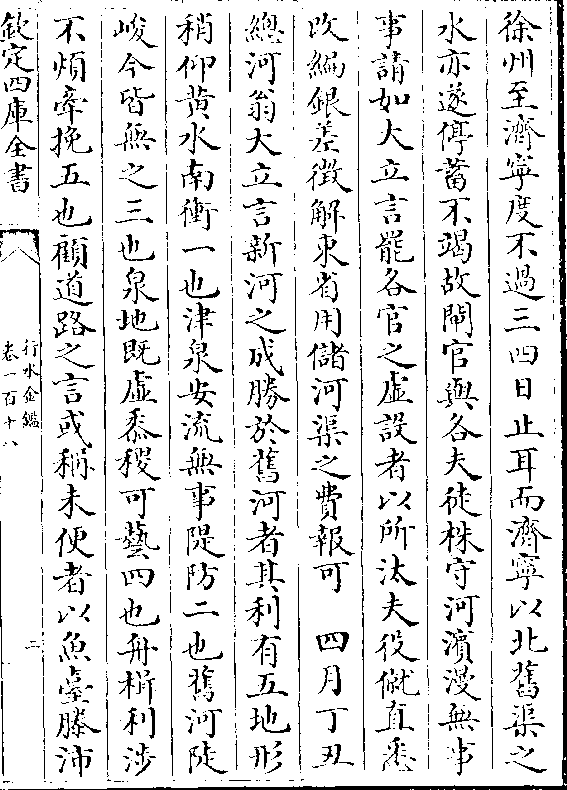 徐州至濟寧度不過三四日止耳而濟寧以北舊渠之
水亦遂停蓄不竭故閘官與各夫徒株守河濱漫無事
事請如大立言罷各官之虛設者以所汰夫役僦直悉
改編銀差徵解東省用儲河渠之費報可　四月丁丑
總河翁大立言新河之成勝於舊河者其利有五地形
稍仰黄水南衝一也津泉安流無事隄防二也舊河陡
峻今皆無之三也泉地既虛黍稷可藝四也舟楫利涉
不煩牽挽五也顧道路之言或稱未便者以魚臺滕沛
欽定四庫全書
行水金鑑
卷一百十八
二